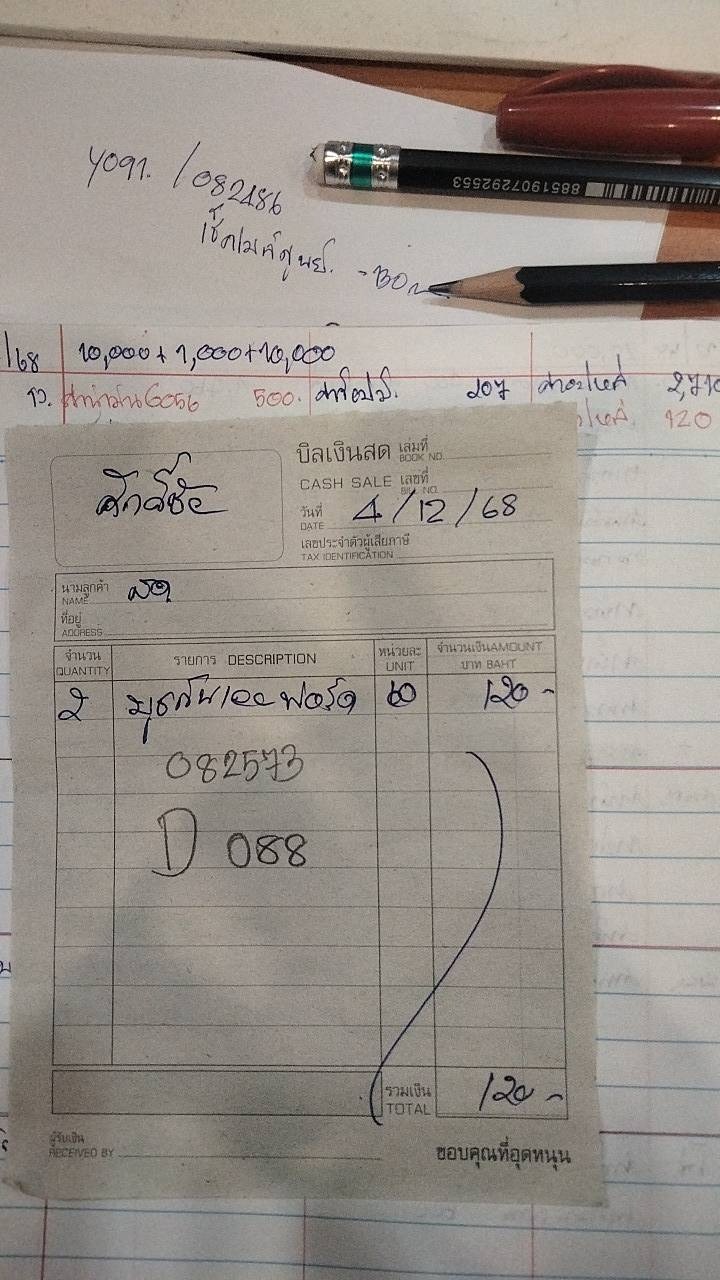 082486
8851907292553
/68 10,000+1,000+10,000
6056 500. 207 2,710
120
ศักดิ์ชัย
บิลเงินสด เล่มที่
BOOK NO.
CASH SALE เลขที่
BILL NO.
วันที่
DATE 4/12/68
เลขประจำตัวผู้เสียภาษี
TAX IDENTIFICATION
นามลูกค้า สด
NAME
ที่อยู่
ADDRESS
จำนวน รายการ DESCRIPTION หน่วยละ จำนวนเงินAMOUNT
QUANTITY UNIT บาท BAHT
2 60 120-
082573
D 088
รวมเงิน 120-
TOTAL
ผู้รับเงิน
RECEIVED BY
ขอบคุณที่อุดหนุน